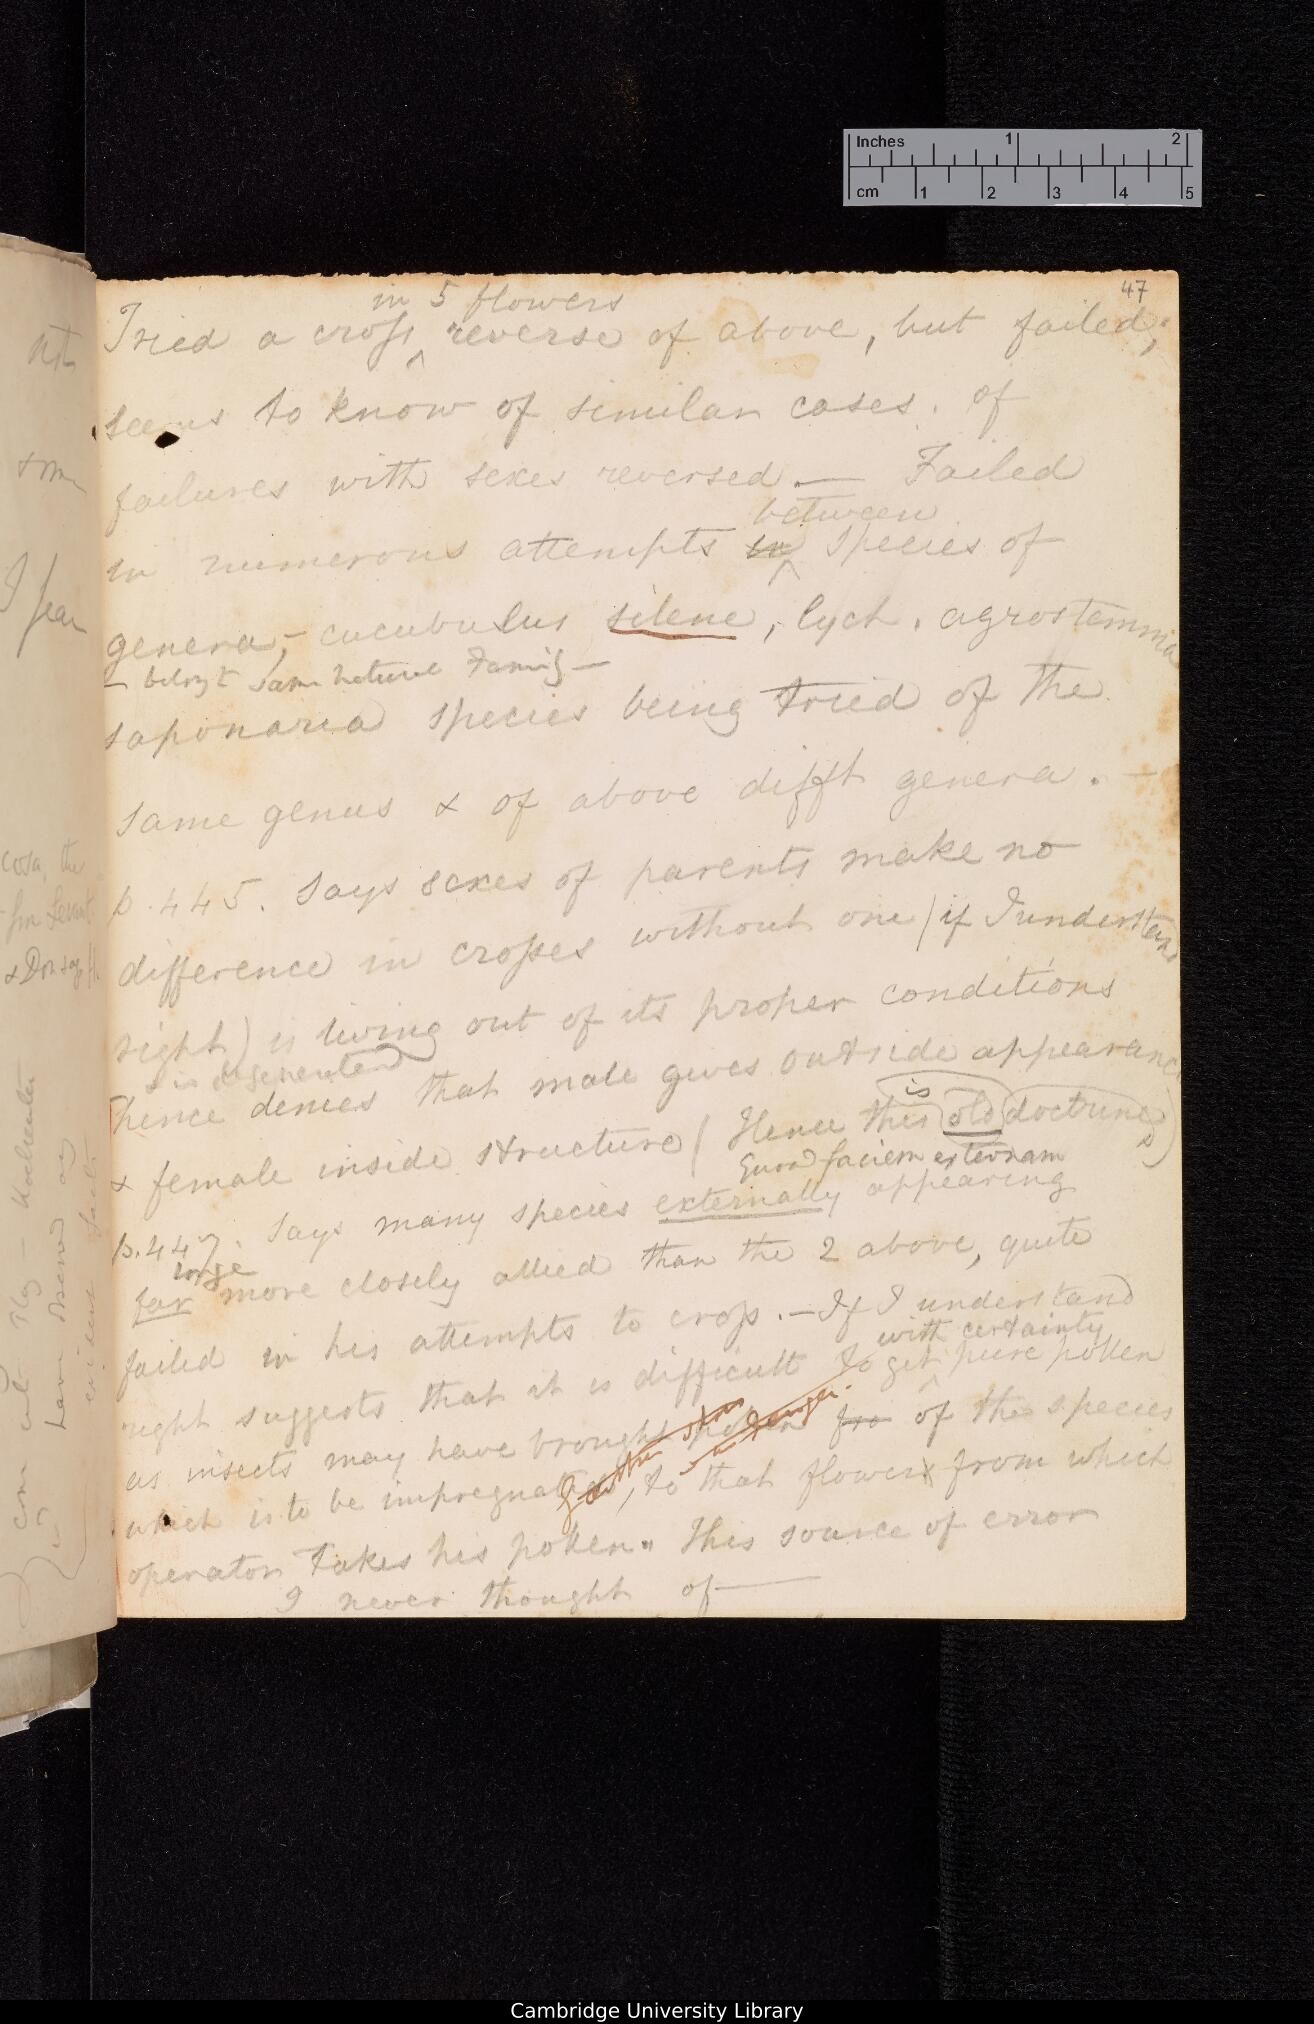 47
in 5 flowers
Tried a cross reverse of above, but failed;
seems to know of similar cases. of
failures with sexes reversed. — Failed
between
in numerous attempts in species of
genera, - cucubulus silene, lych. agrostemma
— belong t same natural Family —
saponaria species being tried of the
same genus & of above difft genera. —
p. 445. Says sexes of parents make no
difference in crosses without one (if I understand
right) is living out of its proper conditions
is degenerated
hence denies that male gives outside appearance
is
& female inside structure (Hence this old doctrine)
faciem externam
p. 447. Says many species externally appearing
longe
far more closely allied than the 2 above, quite
failed in his attempts to cross. — If I understand
with certainty
right suggests that it is difficult to get pure pollen
as insects may have brought pollen fro of the species
which is to be impregnated, to that flower from which
operator takes his pollen. This source of error
I never thought of —
I fear
cosa, the
Inches 1 2
cm 1 2 3 4 5
Cambridge University Library